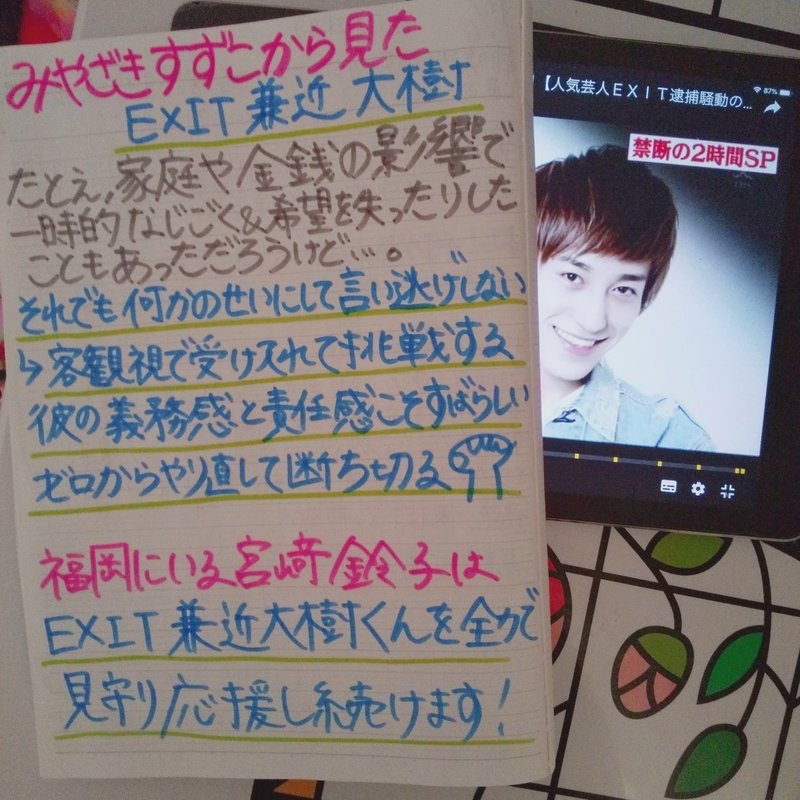 みやざきすずこから見た
EXIT 兼近 大樹
たとえ、家庭や金銭の影響で
一時的なじごく&希望を失ったりした
こともあっただろうけど…。
それでも何かのせいにして言い逃げしない
↳客観視で受け入れて挑戦する
彼の義務感と責任感こそすばらしい
ゼロからやり直して断ち切る
福岡にいる宮﨑鈴子は
EXIT 兼近大樹くんを全力で
見守り応援し続けます!
87%
【人気芸人EXIT逮捕騒動の...
禁断の2時間SP